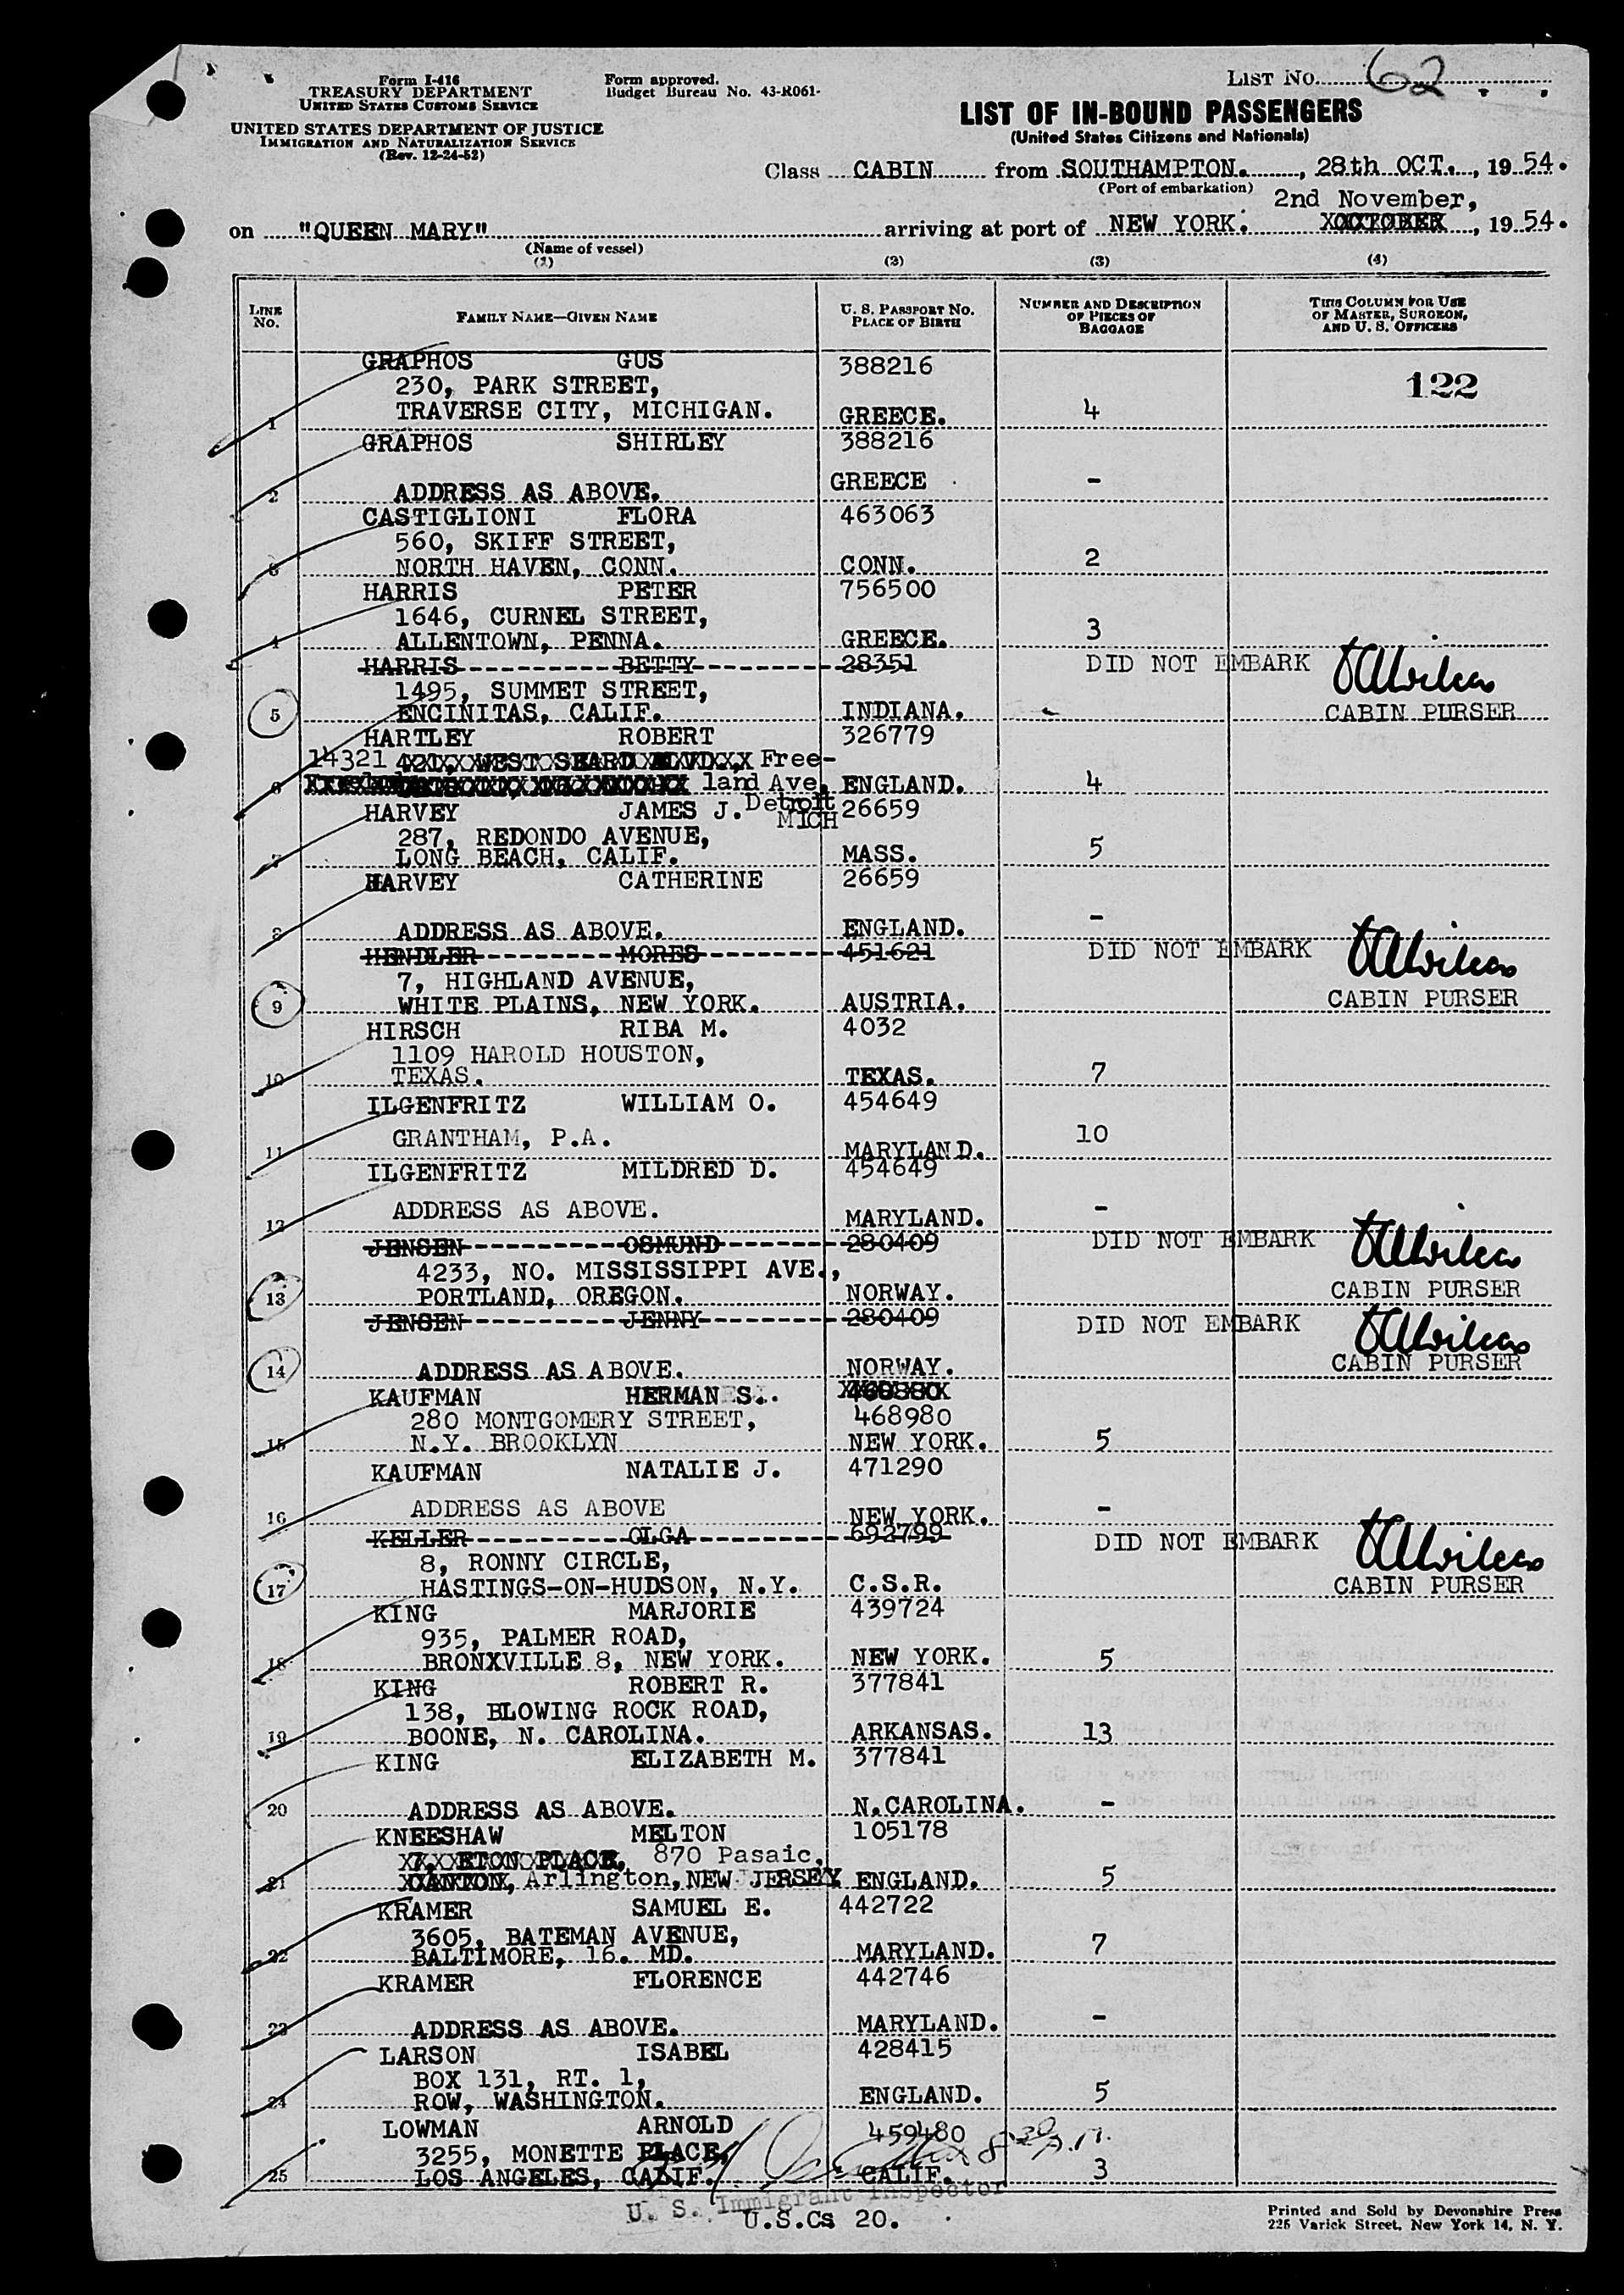 Form I-416
TREASURY DEPARTMENT
UNITED STATES CUSTOMS SERVICE
UNITED STATES DEPARTMENT OF JUSTICE
IMMIGRATION AND NATURALIZATION SERVICE
(Rev. 12-24-52)
Form approved.
Budget Bureau No. 43-R061-
LIST NO. 62
LIST OF IN-BOUND PASSENGERS
(United States Citizens and Nationals)
Class CABIN from SOUTHAMPTON., 28th OCT., 1954.
(Port of embarkation)
2nd November,
on "QUEEN MARY" arriving at port of NEW YORK. OCTOBER, 1954.
(Name of vessel)
(1) (2) (3) (4)
LINE NO.
FAMILY NAME—GIVEN NAME
U. S. PASSPORT NO. PLACE OF BIRTH
NUMBER AND DESCRIPTION OF PIECES OF BAGGAGE
THIS COLUMN FOR USE OF MASTER, SURGEON, AND U. S. OFFICERS
GRAPHOS GUS 388216
230, PARK STREET, 122
1 TRAVERSE CITY, MICHIGAN. GREECE. 4
GRAPHOS SHIRLEY 388216
GREECE -
2 ADDRESS AS ABOVE.
CASTIGLIONI FLORA 463063
560, SKIFF STREET,
3 NORTH HAVEN, CONN. CONN. 2
HARRIS PETER 756500
1646, CURNEL STREET,
4 ALLENTOWN, PENNA. GREECE. 3
HARRIS BETTY 28351 DID NOT EMBARK
1495, SUMMET STREET,
5 ENCINITAS, CALIF. INDIANA. - CABIN PURSER
HARTLEY ROBERT 326779
14321 421, WEST SEARD BLVD., Free-
6 land Ave, ENGLAND. 4
HARVEY JAMES J. Detroit MICH 26659
287, REDONDO AVENUE,
7 LONG BEACH, CALIF. MASS. 5
HARVEY CATHERINE 26659
8 ADDRESS AS ABOVE. ENGLAND. -
HENDLER MORES 451621 DID NOT EMBARK
7, HIGHLAND AVENUE,
9 WHITE PLAINS, NEW YORK. AUSTRIA. CABIN PURSER
HIRSCH RIBA M. 4032
1109 HAROLD HOUSTON,
10 TEXAS. TEXAS. 7
ILGENFRITZ WILLIAM O. 454649
GRANTHAM, P.A. 10
11 MARYLAND.
ILGENFRITZ MILDRED D. 454649
ADDRESS AS ABOVE.
12 MARYLAND. -
JENSEN OSMUND 280409 DID NOT EMBARK
4233, NO. MISSISSIPPI AVE.,
13 PORTLAND, OREGON. NORWAY. CABIN PURSER
JENSEN JENNY 280409 DID NOT EMBARK
14 ADDRESS AS ABOVE. NORWAY. CABIN PURSER
KAUFMAN HERMAN S.
280 MONTGOMERY STREET, 468980
15 N.Y. BROOKLYN NEW YORK. 5
KAUFMAN NATALIE J. 471290
16 ADDRESS AS ABOVE NEW YORK. -
KELLER OLGA 692799 DID NOT EMBARK
8, RONNY CIRCLE,
17 HASTINGS-ON-HUDSON, N.Y. C.S.R. CABIN PURSER
KING MARJORIE 439724
935, PALMER ROAD,
18 BRONXVILLE 8, NEW YORK. NEW YORK. 5
KING ROBERT R. 377841
138, BLOWING ROCK ROAD,
19 BOONE, N. CAROLINA. ARKANSAS. 13
KING ELIZABETH M. 377841
20 ADDRESS AS ABOVE. N.CAROLINA. -
KNEESHAW MELTON 105178
7, ETON PLACE, 870 Pasaic,
21 Arlington, NEW JERSEY ENGLAND. 5
KRAMER SAMUEL E. 442722
3605, BATEMAN AVENUE,
22 BALTIMORE, 16. MD. MARYLAND. 7
KRAMER FLORENCE 442746
23 ADDRESS AS ABOVE. MARYLAND. -
LARSON ISABEL 428415
BOX 131, RT. 1,
24 ROW, WASHINGTON. ENGLAND. 5
LOWMAN ARNOLD 459480
3255, MONETTE PLACE,
25 LOS ANGELES, CALIF. CALIF. 3
U. S. Immigrant Inspector
U.S.Cs 20.
Printed and Sold by Devonshire Press
225 Varick Street, New York 14, N. Y.